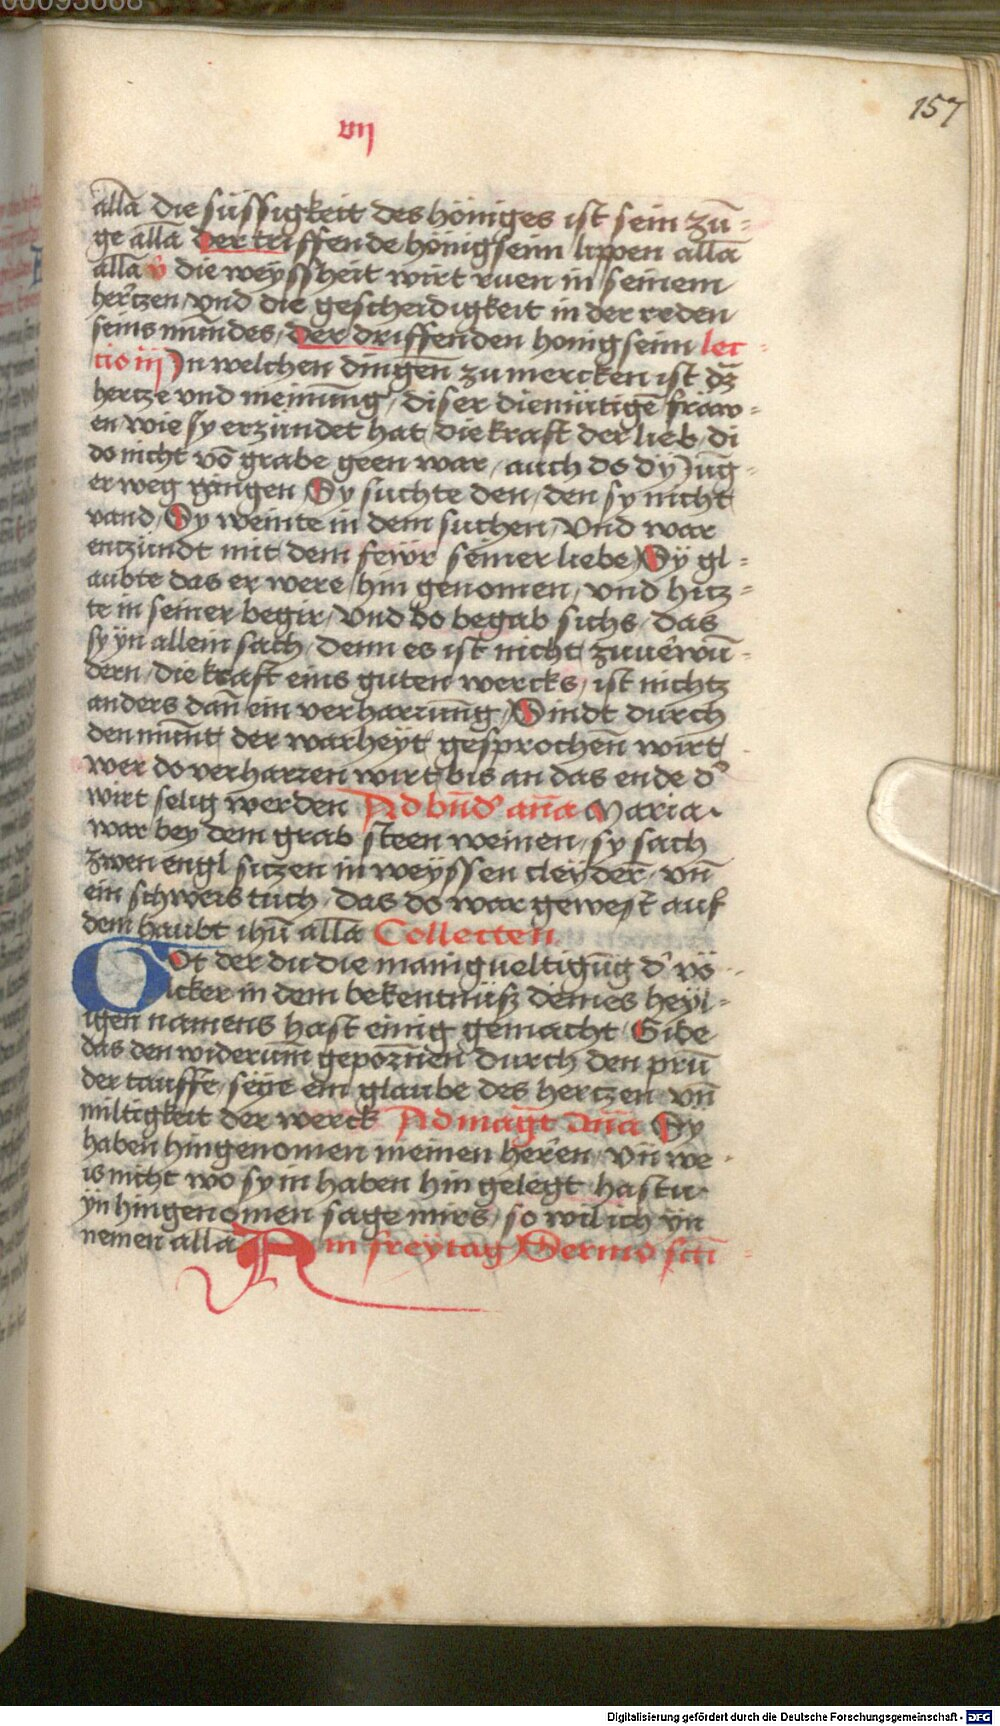 00093668
157
vij
alla die süssigkeit des höniges ist sein zū-
ge allā der trieffende hönigseim lippen allā
allā v̄ die weyssheit wirt ruen in seinem
hertzen / vnd die gescheidigkeit in der reden
seins mundes / der drieffenden honigseim lec-
tio iij In welchen dingen zu mercken ist dz
hertze vnd meinūng / diser diemütigē fraw-
en / wie sy erzündet hat / die kraft der lieb / di
do nicht vō grabe geen war / auch do dy Jūg-
er weg gingen Sy suchte den / den sy nicht
vand / Sy weinte in dem suchen / Vnd war
entzündt mit dem fewr seiner liebe / Sÿ gl-
aubte das er were / hin genomen / vnd hitz-
te in seiner begir / Vnd do begab sichs / das
sy ÿn allein sach / denn es ist nicht zuuerwū-
dern / die kraft eins guten wercks / ist nichtz
anders dan̄ ein verharrung / Sindt durch
den mundt der warheyt gesprochen wirt
wer do verharren wirt bis an das ende d'
wirt selig werden Ad bn̄d' an̄a Maria
war bey dem grab steen weinen / sy sach
zwen engl sitzen in weyssen cleyder̄ / vn̄
ein schweis tuch / das do war gewest auf
dem haubt ihū allā Collecten
Got der du die manigueltigūg d' vö-
lcker in dem bekentnüß deines heyl-
igen namens hast einig gemacht Gibe
das den widerum̄ gepornen durch den prū
der tauffe / seye ein glaube des hertzen vn̄
miltigkeit der werck Ad magt an̄a Sy
haben hingenomen meinen herren / vn̄ we-
is nicht wo sy in haben hin gelegt hastu
ÿn hingenomen sage mirs / so wil ich ÿn
nemen allā Am freytag Sermo scti
Digitalisierung gefördert durch die Deutsche Forschungsgemeinschaft - DFG